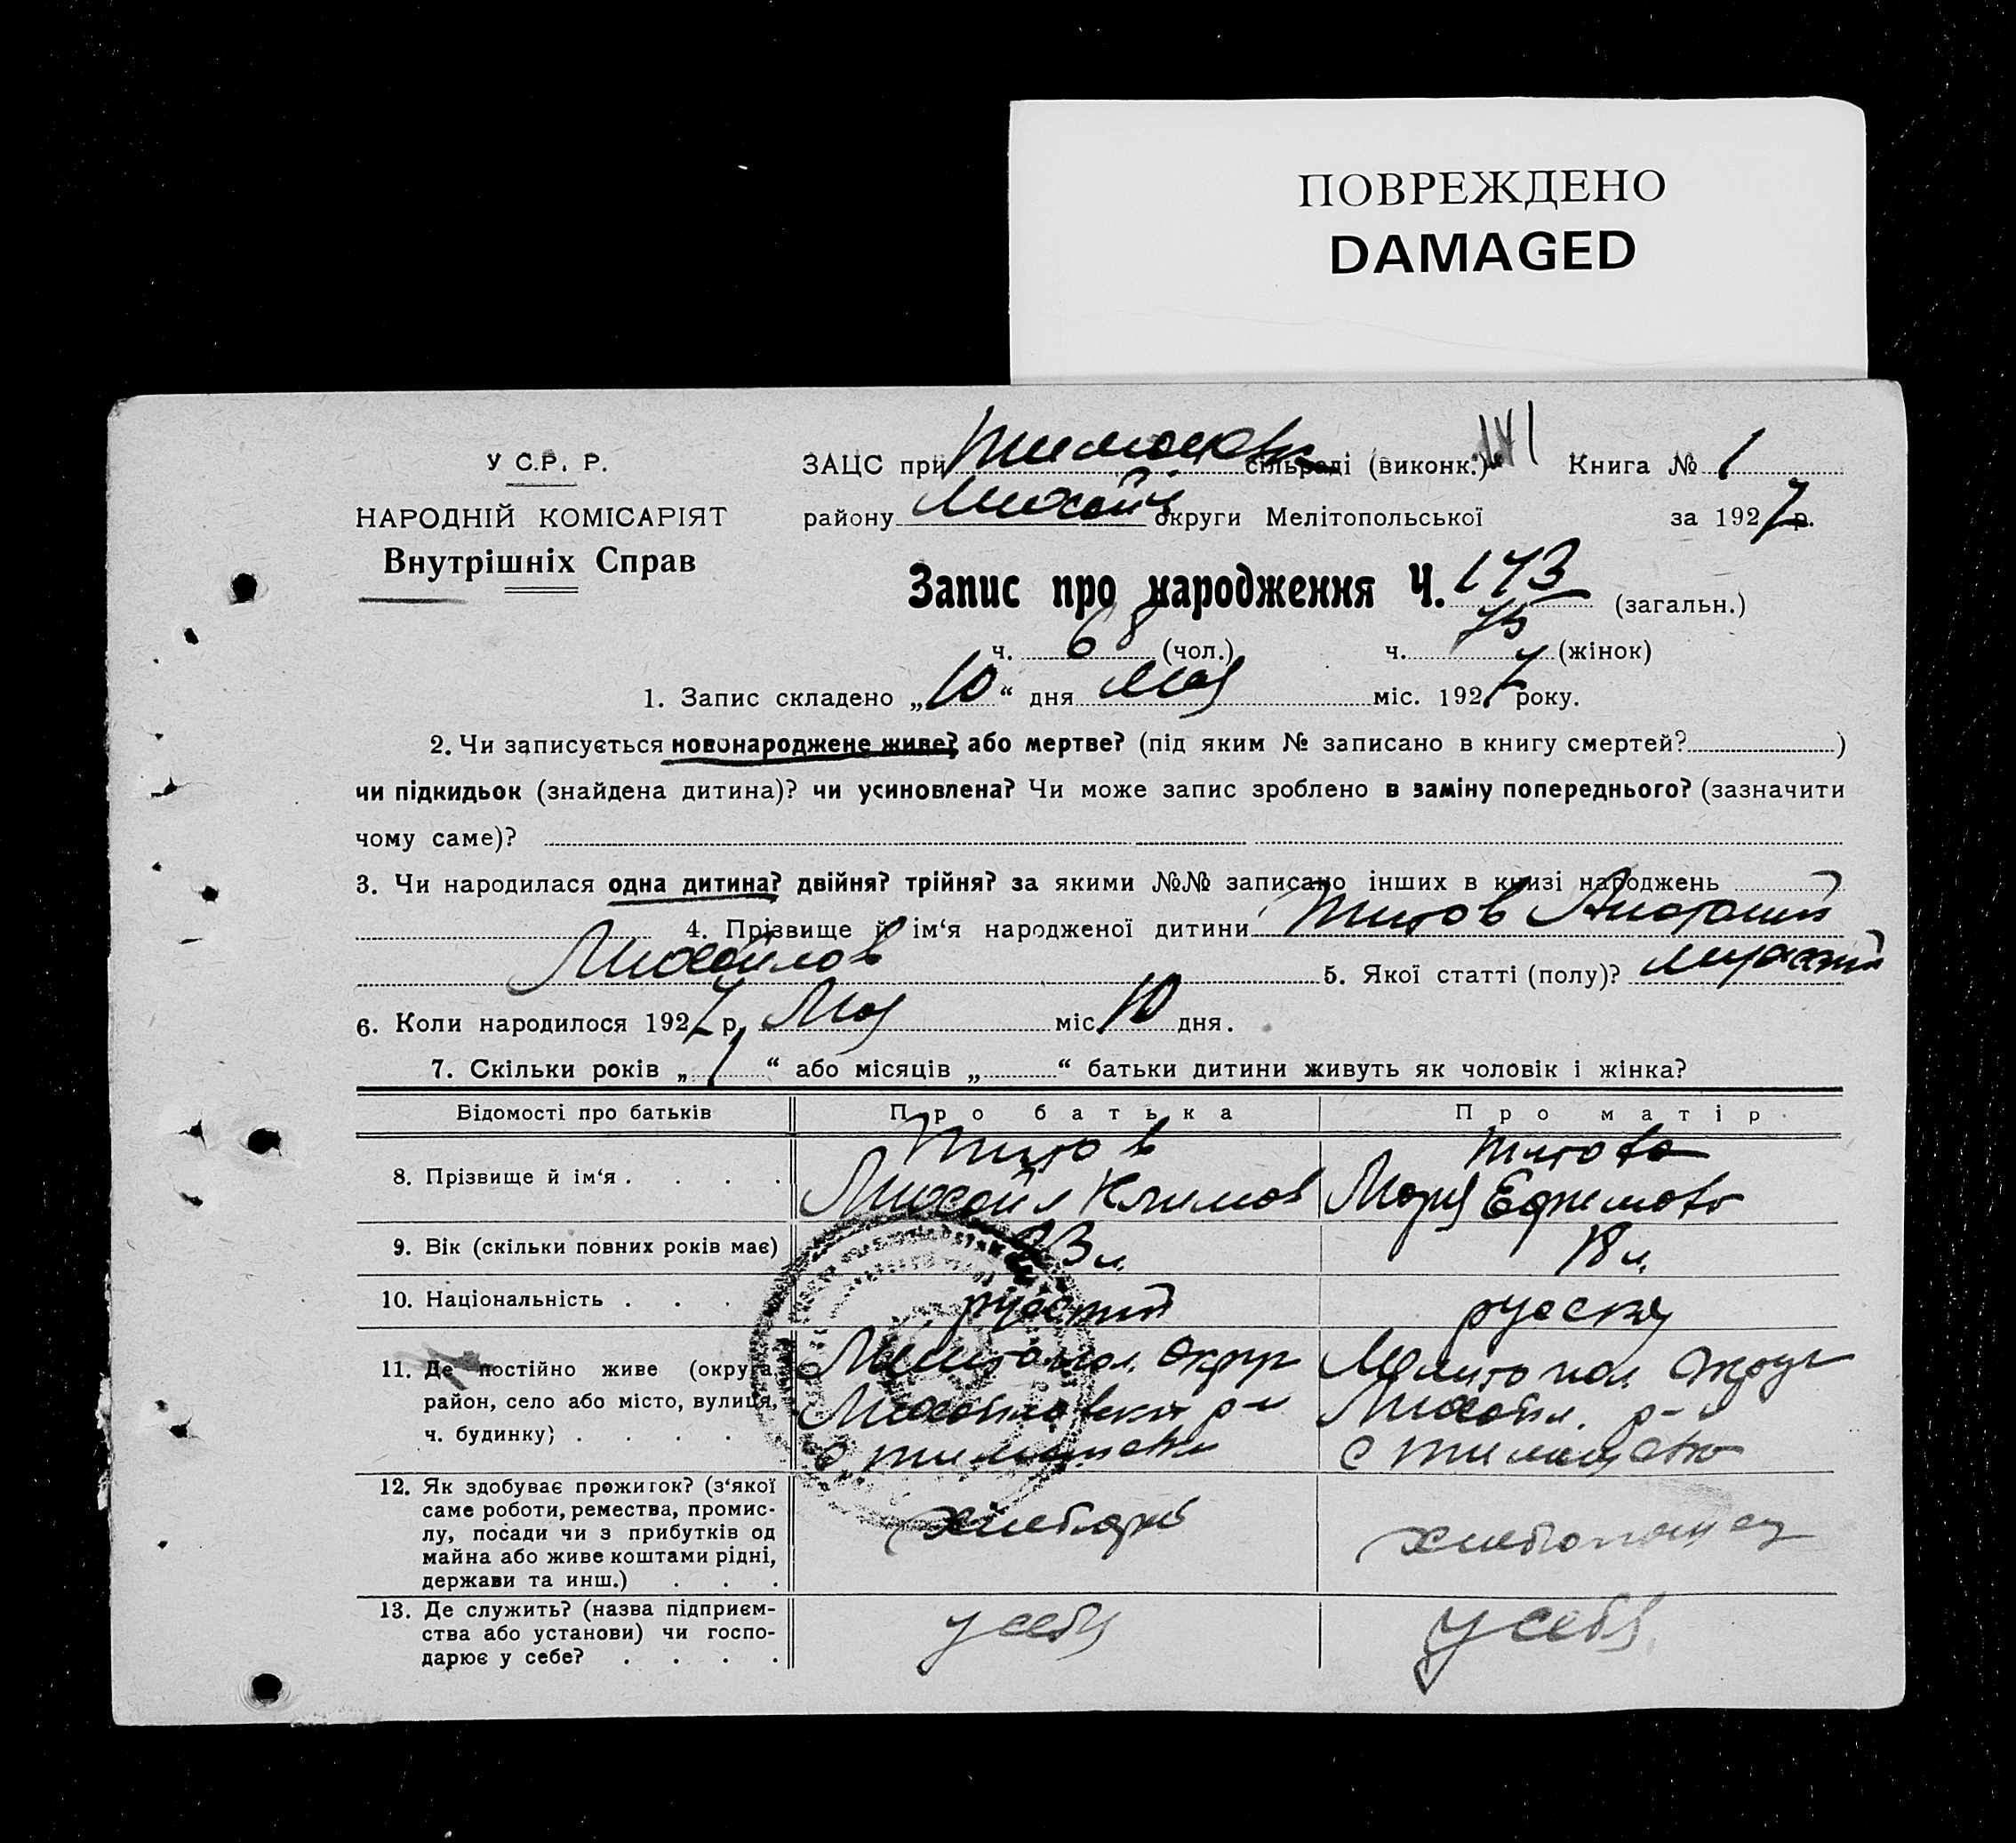 ПОВРЕЖДЕНО
DAMAGED
У С.Р. Р.
НАРОДНІЙ КОМІСАРІЯТ
Внутрішніх Справ
ЗАЦС при сільраді (виконк.) Книга № 1
району Михайл округи Мелітопольської за 1927 р.
Запис про народження Ч. 143 (загальн.)
ч. 68 (чол.) ч. 75 (жінок)
1. Запис складено „10“ дня Мая міс. 1927 року.
2. Чи записується новонароджене живе? або мертве? (під яким № записано в книгу смертей? )
чи підкидьок (знайдена дитина)? чи усиновлена? Чи може запис зроблено в заміну попереднього? (зазначити
чому саме)?
3. Чи народилася одна дитина? двійня? трійня? за якими №№ записано інших в книзі народжень
4. Прізвище й ім‘я народженої дитини Титов Анатолий
Михайлов 5. Якої статті (полу)? мужской
6. Коли народилося 1927 р. Мая міс. 10 дня.
7. Скільки років „1“ або місяців „ “ батьки дитини живуть як чоловік і жінка?
Відомості про батьків Про батька Про матір
8. Прізвище й ім‘я . . . . Титов Михаил Климов Титова Мария Ефимова
9. Вік (скільки повних років має) 23 л. 18 л.
10. Національність . . . русский руская
11. Де постійно живе (округа, район, село або місто, вулиця, ч. будинку) . . . . Мелитопол. округ Михайловски р-н с. Мелитопол округ Михайл. р-н с
12. Як здобуває прожиток? (з‘якої саме роботи, ремества, промислу, посади чи з прибутків од майна або живе коштами рідні, держави та инш.) . . . хлебороб
13. Де служить? (назва підприємства або установи) чи господарює у себе? . . . . у себя у себя